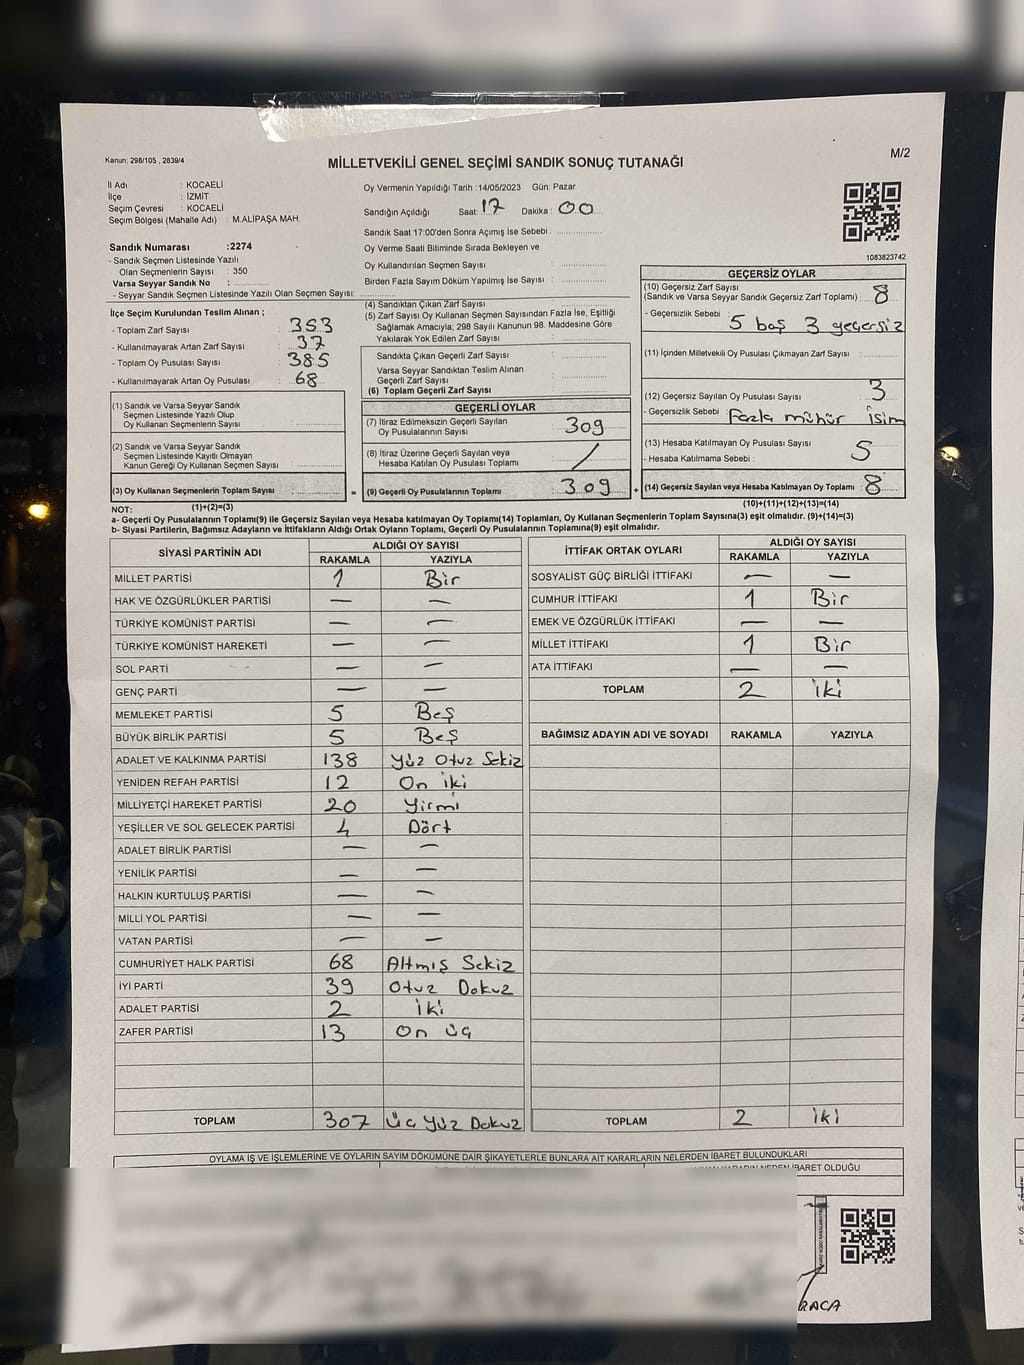 Kanun; 298/105 , 2839/4
M/2
MİLLETVEKİLİ GENEL SEÇİMİ SANDIK SONUÇ TUTANAĞI
İl Adı : KOCAELİ
İlçe : İZMİT
Seçim Çevresi : KOCAELİ
Seçim Bölgesi (Mahalle Adı) : M.ALİPAŞA MAH.
Sandık Numarası :2274
- Sandık Seçmen Listesinde Yazılı
Olan Seçmenlerin Sayısı : 350
Varsa Seyyar Sandık No :
- Seyyar Sandık Seçmen Listesinde Yazılı Olan Seçmen Sayısı:
Oy Vermenin Yapıldığı Tarih : 14/05/2023 Gün: Pazar
Sandığın Açıldığı Saat: 17 Dakika : 00
Sandık Saat 17:00'den Sonra Açımış İse Sebebi :
Oy Verme Saati Bitiminde Sırada Bekleyen ve
Oy Kullandırılan Seçmen Sayısı :
Birden Fazla Sayım Döküm Yapılmış İse Sayısı :
1083823742
İlçe Seçim Kurulundan Teslim Alınan ;
- Toplam Zarf Sayısı : 353
- Kullanılmayarak Artan Zarf Sayısı : 37
- Toplam Oy Pusulası Sayısı : 385
- Kullanılmayarak Artan Oy Pusulası : 68
(1) Sandık ve Varsa Seyyar Sandık
Seçmen Listesinde Yazılı Olup
Oy Kullanan Seçmenlerin Sayısı :
(2) Sandık ve Varsa Seyyar Sandık
Seçmen Listesinde Kayıtlı Olmayan
Kanun Gereği Oy Kullanan Seçmen Sayısı :
(3) Oy Kullanan Seçmenlerin Toplam Sayısı :
(1)+(2)=(3)
(4) Sandıktan Çıkan Zarf Sayısı :
(5) Zarf Sayısı Oy Kullanan Seçmen Sayısından Fazla İse, Eşitliği
Sağlamak Amacıyla; 298 Sayılı Kanunun 98. Maddesine Göre
Yakılarak Yok Edilen Zarf Sayısı :
Sandıkta Çıkan Geçerli Zarf Sayısı :
Varsa Seyyar Sandıktan Teslim Alınan
Geçerli Zarf Sayısı :
(6) Toplam Geçerli Zarf Sayısı :
GEÇERLİ OYLAR
(7) İtiraz Edilmeksizin Geçerli Sayılan
Oy Pusulalarının Sayısı : 309
(8) İtiraz Üzerine Geçerli Sayılan veya
Hesaba Katılan Oy Pusulası Toplamı : /
= (9) Geçerli Oy Pusulalarının Toplamı : 309 +
GEÇERSİZ OYLAR
(10) Geçersiz Zarf Sayısı
(Sandık ve Varsa Seyyar Sandık Geçersiz Zarf Toplamı) : 8
- Geçersizlik Sebebi : 5 boş 3 geçersiz
(11) İçinden Milletvekili Oy Pusulası Çıkmayan Zarf Sayısı :
(12) Geçersiz Sayılan Oy Pusulası Sayısı : 3
- Geçersizlik Sebebi : Fazla mühür İsim
(13) Hesaba Katılmayan Oy Pusulası Sayısı : 5
- Hesaba Katılmama Sebebi :
(14) Geçersiz Sayılan veya Hesaba Katılmayan Oy Toplamı : 8
(10)+(11)+(12)+(13)=(14)
NOT:
a- Geçerli Oy Pusulalarının Toplamı(9) ile Geçersiz Sayılan veya Hesaba katılmayan Oy Toplamı(14) Toplamları, Oy Kullanan Seçmenlerin Toplam Sayısına(3) eşit olmalıdır. (9)+(14)=(3)
b- Siyasi Partilerin, Bağımsız Adayların ve İttifakların Aldığı Ortak Oyların Toplamı, Geçerli Oy Pusulalarının Toplamına(9) eşit olmalıdır.
SİYASİ PARTİNİN ADI ALDIĞI OY SAYISI
RAKAMLA YAZIYLA
MİLLET PARTİSİ 1 Bir
HAK VE ÖZGÜRLÜKLER PARTİSİ — —
TÜRKİYE KOMÜNİST PARTİSİ — —
TÜRKİYE KOMÜNİST HAREKETİ — —
SOL PARTİ — —
GENÇ PARTİ — —
MEMLEKET PARTİSİ 5 Beş
BÜYÜK BİRLİK PARTİSİ 5 Beş
ADALET VE KALKINMA PARTİSİ 138 Yüz Otuz Sekiz
YENİDEN REFAH PARTİSİ 12 On iki
MİLLİYETÇİ HAREKET PARTİSİ 20 Yirmi
YEŞİLLER VE SOL GELECEK PARTİSİ 4 Dört
ADALET BİRLİK PARTİSİ — —
YENİLİK PARTİSİ — —
HALKIN KURTULUŞ PARTİSİ — —
MİLLİ YOL PARTİSİ — —
VATAN PARTİSİ — —
CUMHURİYET HALK PARTİSİ 68 Altmış Sekiz
İYİ PARTİ 39 Otuz Dokuz
ADALET PARTİSİ 2 İki
ZAFER PARTİSİ 13 On üç
TOPLAM 307 üç Yüz Dokuz
İTTİFAK ORTAK OYLARI ALDIĞI OY SAYISI
RAKAMLA YAZIYLA
SOSYALİST GÜÇ BİRLİĞİ İTTİFAKI — —
CUMHUR İTTİFAKI 1 Bir
EMEK VE ÖZGÜRLÜK İTTİFAKI — —
MİLLET İTTİFAKI 1 Bir
ATA İTTİFAKI — —
TOPLAM 2 İki
BAĞIMSIZ ADAYIN ADI VE SOYADI RAKAMLA YAZIYLA
TOPLAM 2 İki
OYLAMA İŞ VE İŞLEMLERİNE VE OYLARIN SAYIM DÖKÜMÜNE DAİR ŞİKAYETLERLE BUNLARA AİT KARARLARIN NELERDEN İBARET BULUNDUKLARI
NEDEN İBARET OLDUĞU